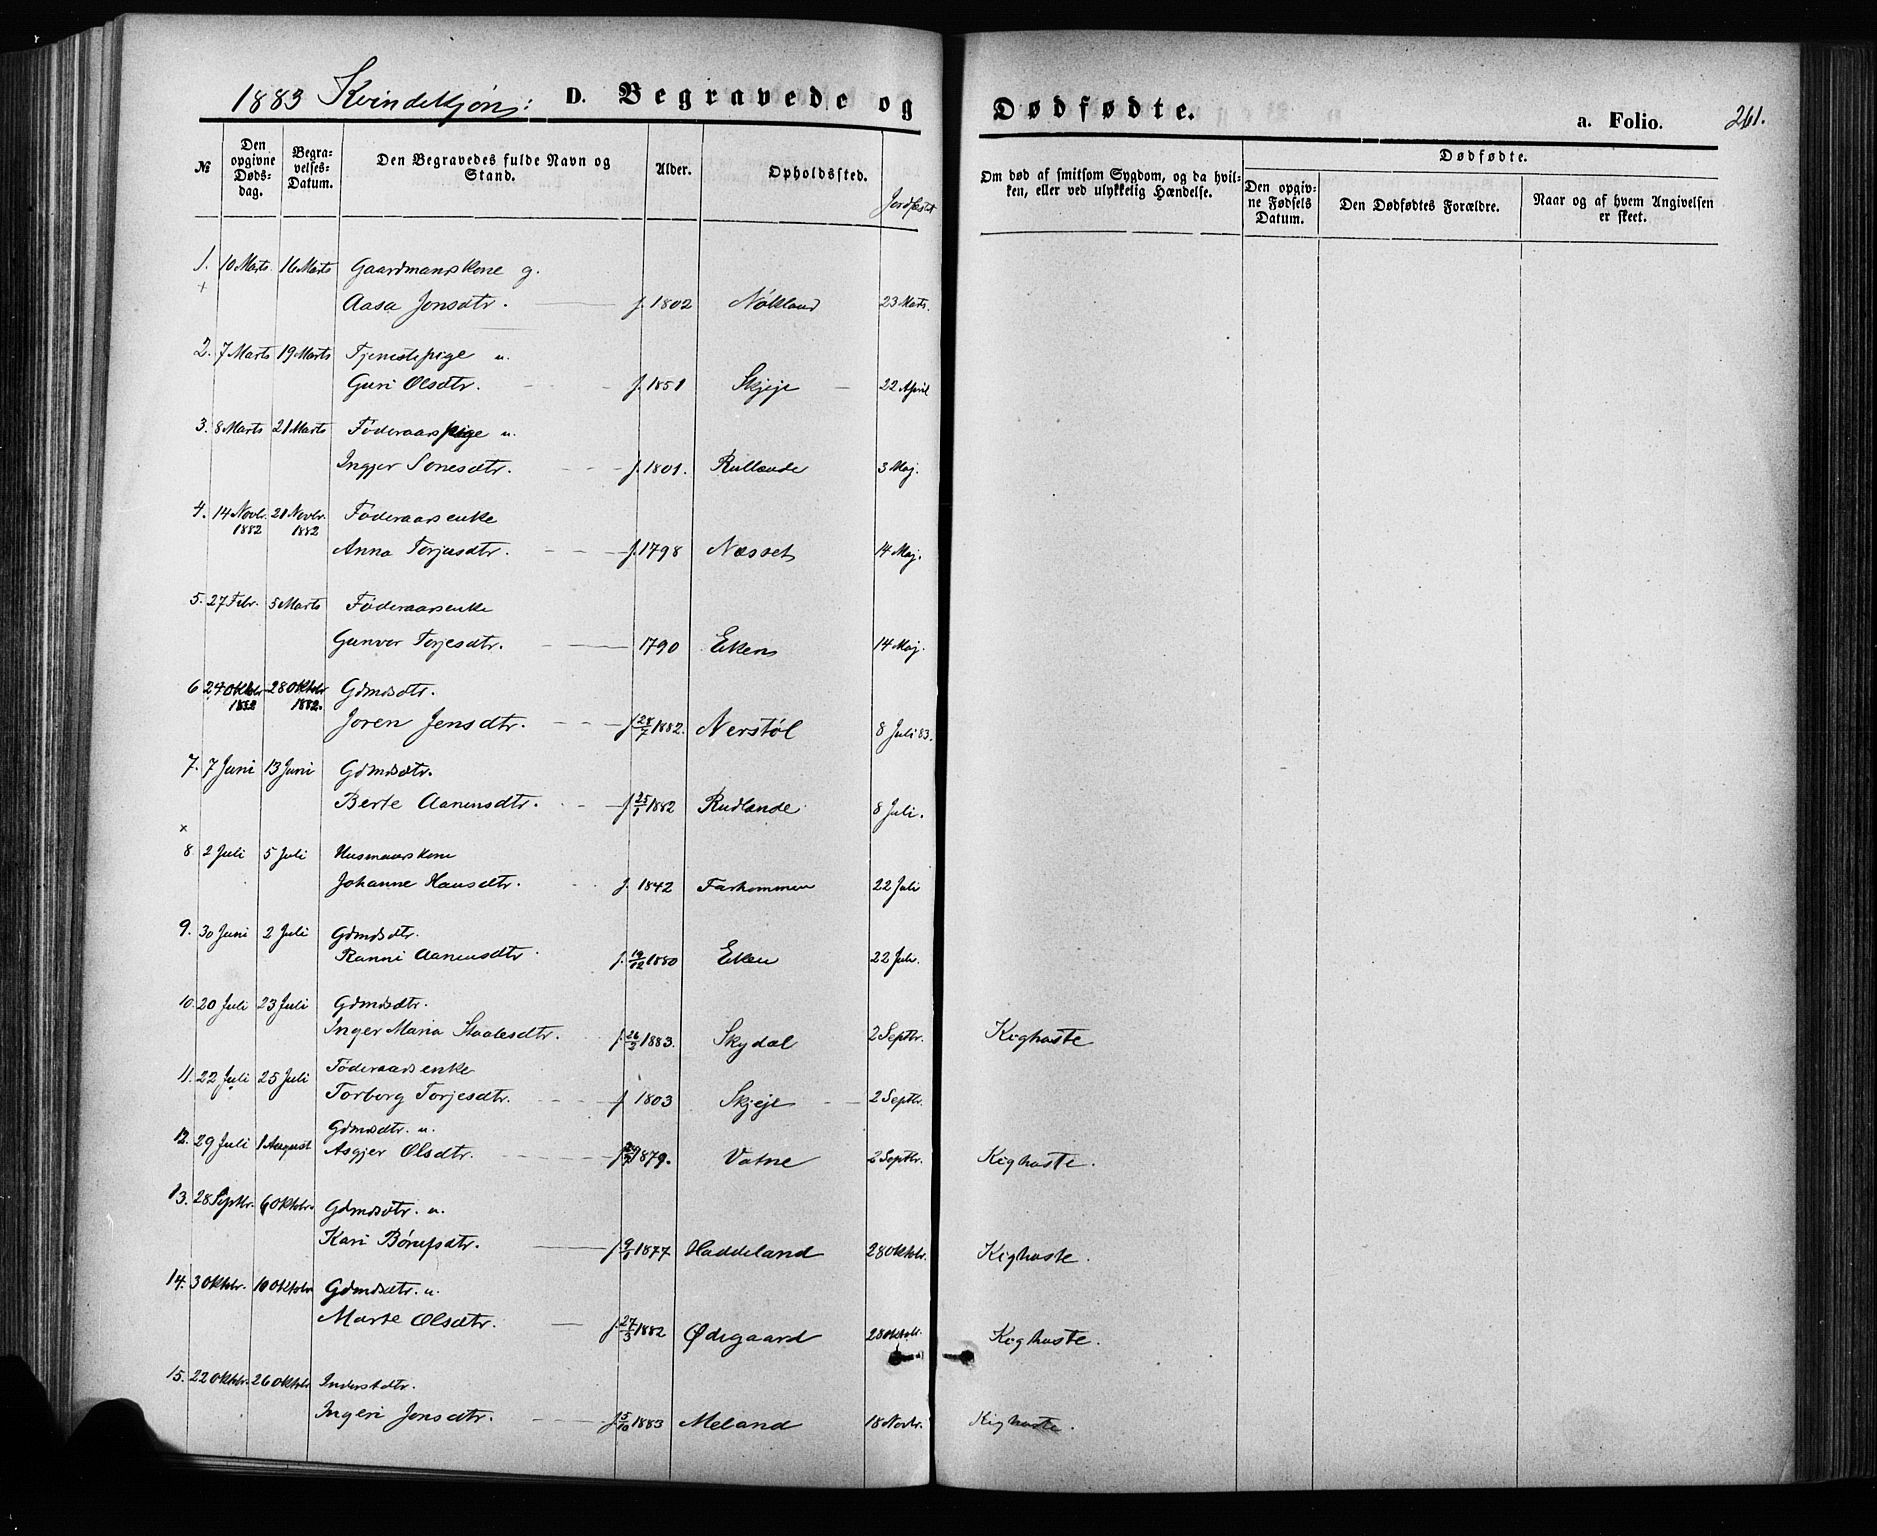 1883 Kvindekjøn: D. Begravede og Dødfødte. a. Folio. 261.
№ Den opgivne Dødsdag. Begravelses-Datum. Den Begravedes fulde Navn og Stand. Alder. Opholdssted. Jordfæstet Om død af smitsom Sygdom, og da hvilken, eller ved ulykkelig Hændelse. Dødfødte.
Den opgivne Fødsels Datum. Den Dødfødtes Forældre. Naar og af hvem Angivelsen er skeet.
1. 10 Marts 16 Marts Gaardmanskone g.
Aasa Jonsdtr. f. 1802 Nökland 23 Marts.
2. 7 Marts 19 Marts Tjenestepige u.
Guri Olsdtr. f. 1851 Skjeje 22 April
3. 8 Marts 21 Marts Föderaarspige u.
Ingjer Sonesdtr. f. 1801. Rullande 3 Maj.
4. 14 Novbr. 1882 21 Novbr. 1882 Föderaarsenke
Anna Torjusdtr. f. 1798 Næsset 14 Maj.
5. 27 Febr. 5 Marts Föderaarsenke
Gunvor Torjesdtr. 1790 Eken 14 Maj.
6 24 Oktobr 1882 28 Oktobr 1882. Gdmdsdtr.
Joren Jensdtr. f 28/7 1882. Nerstöl 8 Juli 83.
7. 7 Juni 13 Juni Gdmdsdtr.
Berte Aanensdtr. f 25/1 1882 Rudlande 8 Juli.
8. 2 Juli 5 Juli Husmanskone
Johanne Hansdtr. f. 1842 Farkommen 22 Juli
9. 30 Juni 2 Juli Gdmdsdtr.
Ranni Aanensdtr. f. 19/12 1880 Eken 22 Juli.
10. 20 Juli 23 Juli Gdmdsdtr.
Inger Maria Staalesdtr. f. 26/2 1883. Skydal 2 Septbr. Kighoste
11. 22 Juli 25 Juli Föderaarsenke
Torborg Torjesdtr. f 1803 Skjeje 2 Septbr.
12. 29 Juli 1 August Gdmdsdtr. u.
Asgjer Olsdtr. 1879. Vatne 2 Septbr. Kighoste.
13. 28 Septbr. 6 Oktobr. Gdmdsdtr. u.
Kari Börufsdtr. f 9/1 1877 Haddeland 28 Oktobr. Kighoste.
14. 3 Oktobr. 10 Oktobr Gdmdsdtr. u.
Marte Olsdtr. f. 27/3 1882 Ødegaard 28 Oktob. Kighoste.
15. 22 Oktobr. 26 Oktobr Inderstdtr.
Ingeri Jonsdtr. f 5/10 1883 Meland 18 Novbr. Kighoste.